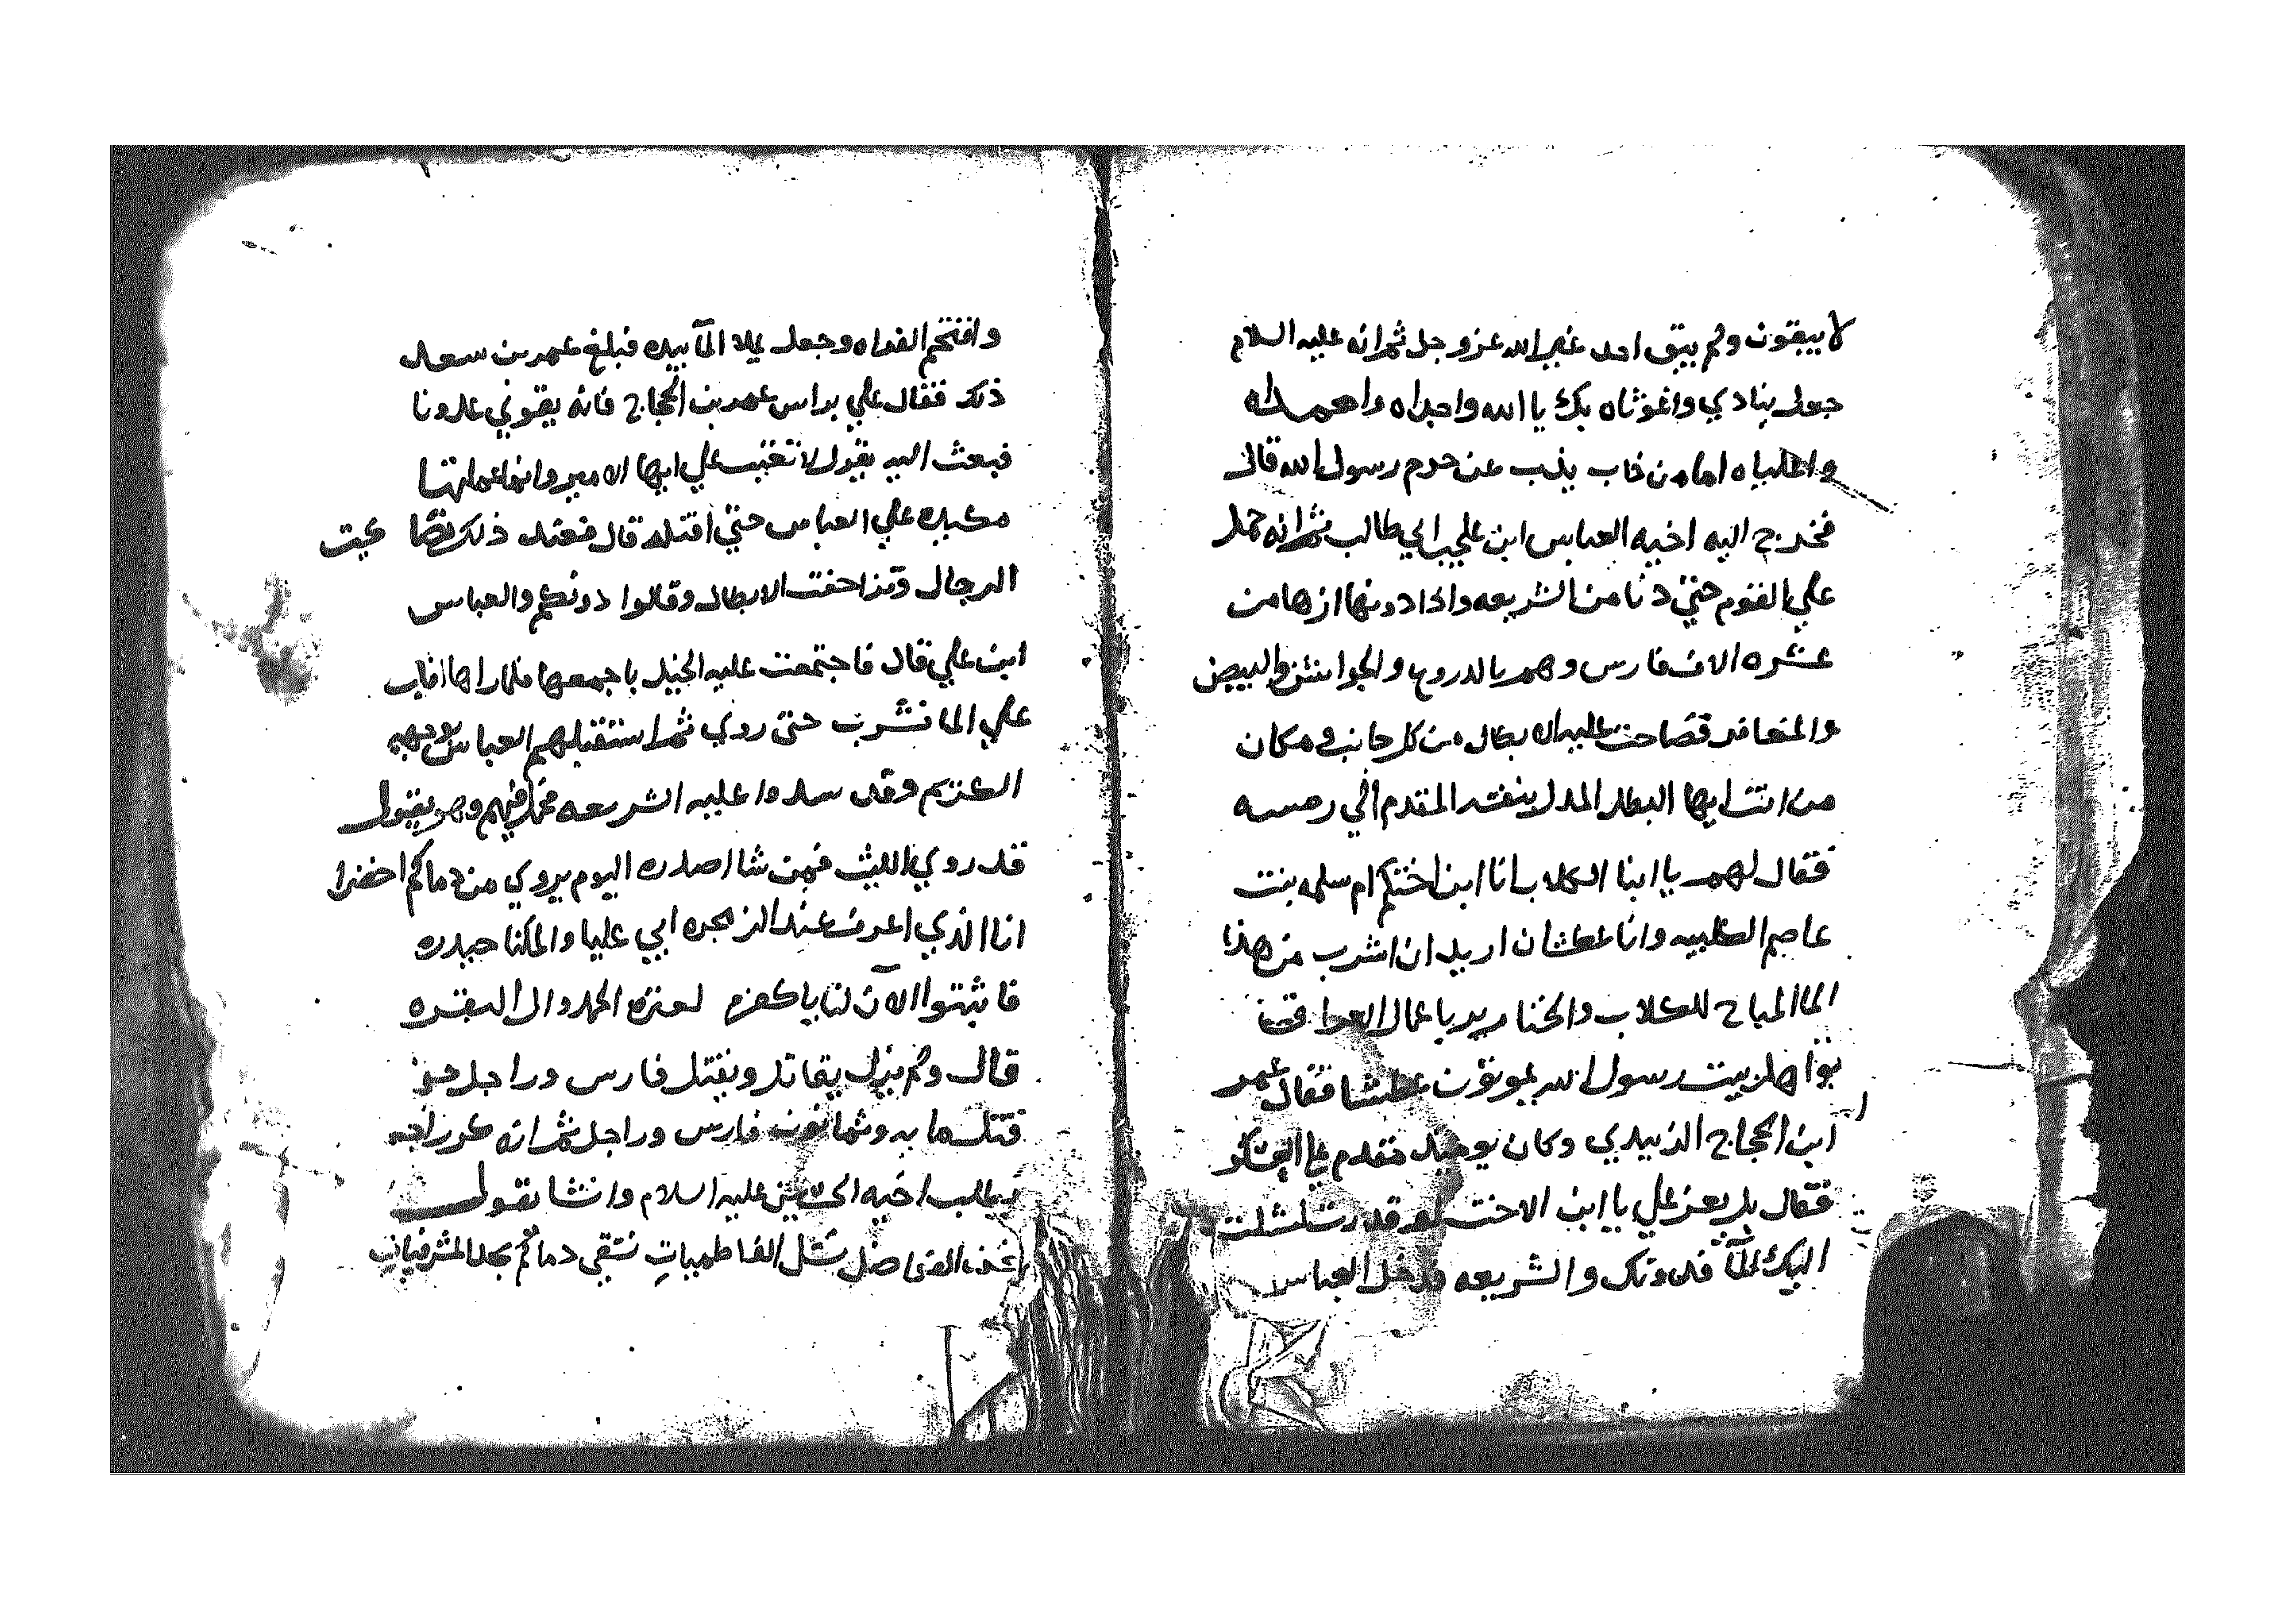 لا يبقون ولم يبق احد غير الله عز وجل ثم انه عليه السلام
جعل ينادي واغوثاه بك يا الله واجداه وامحمداه
واعلياه اما من ذاب يذب عن حرم رسول الله قال
فخرج اليه اخيه العباس ابن علي ابي طالب ثم انه حمل
علي القوم حتي دنا من الشريعه واذا دونها ازها من
عشره الاف فارس وهم بالدروع والجواشن والبيض
والمتعافد فصاحت عليه الابطال من كل جانب ومكان
من انت ايها البطل المدل بنفسه المقدم الي رمسه
فقال لهم يا ابنا الكلاب انا ابن اختكم ام سلمه بنت
عاصم الكلبيه وانا عطشان اريد ان اشرب من هذا
الما المباح للكلاب والخنازير يا عمال العراق
بنوا هل بيت رسول الله يموتون عطشا فقال عمر
ابن الحجاج الزبيدي وكان يوميذ مقدم علي العسكر
فقال بل يعز علي يا ابن الاخت لو قدرت لشلت
اليك الما فدونك والشريعه فدخل العباس
واقتحم الفراه وجعل يملا المآ بيده فبلغ عمر بن سعد
ذلك فقال علي براس عمر بن الحجاج فانه يقوي علونا
فبعث اليه يقول لا تغضب علي ايها الامير وانما عملتها
مكيده علي العباس حتي اقتله قال فعند ذلك
الرجال وتزاحفت الابطال وقالوا دونكم والعباس
ابن علي قال فاجتمعت عليه الخيل باجمعها فلما راها اقلب
علي الما فشرب حتي روي ثم استقبلهم العباس بوجهه
الكريم وقد سدوا عليه الشريعه فحمل فيهم وهو يقول
قد روي الليث فمن شا اصدره اليوم يروي من دماكم احضرا
انا الذي اعرف عند الزمجره ابي عليا والمكنا حيدره
فاثبتوا الآن لنا يا كفره لعترة الحمد وال البقره
قال ولم يزل يقاتل ويقتل فارس وراجل حتي
قتل مايه وثمانون فارس وراجل ثم انه كر راجه
يطلب اخيه الحسين عليه السلام وانشا يقول
نحن الفواضل نسل الفاطميات نسقي دماكم بحد المشرفيات